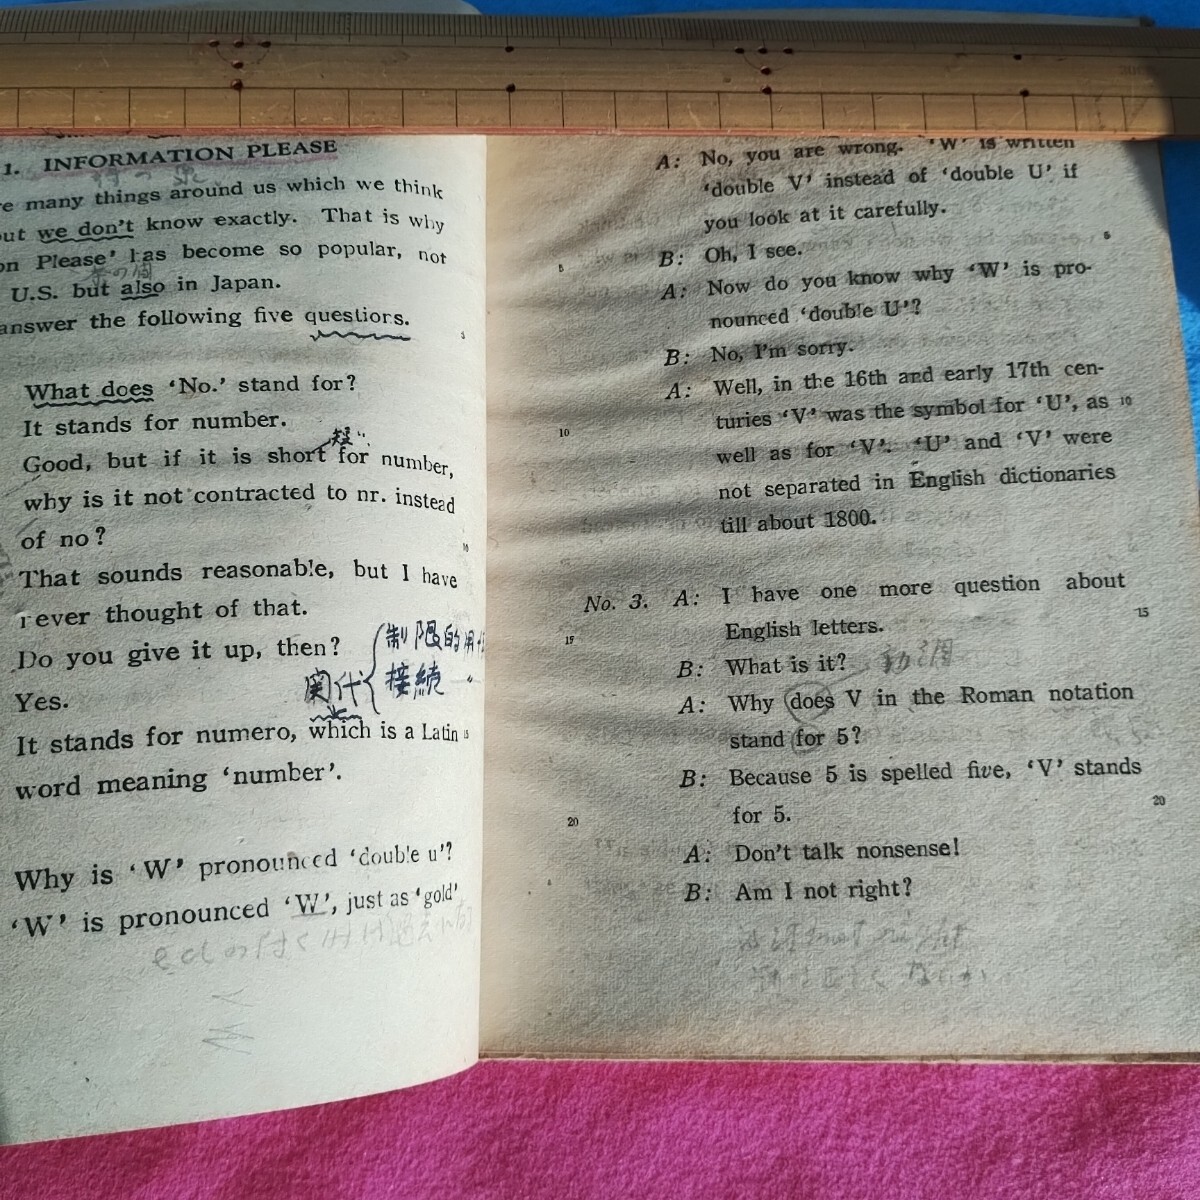 1. INFORMATION PLEASE
many things around us which we think
but we don't know exactly. That is why
Please' has become so popular, not
U.S. but also in Japan.
answer the following five questions.
5
What does 'No.' stand for?
It stands for number.
Good, but if it is short for number,
why is it not contracted to nr. instead
of no?
10
That sounds reasonable, but I have
never thought of that.
Do you give it up, then?
制限的用
関代
接続
Yes.
It stands for numero, which is a Latin 15
word meaning 'number'.
Why is 'W' pronounced 'double u'?
'W' is pronounced 'W', just as 'gold'
A: No, you are wrong. 'W' is written
'double V' instead of 'double U' if
you look at it carefully.
5 B: Oh, I see.
A: Now do you know why 'W' is pro-
nounced 'double U'?
B: No, I'm sorry.
A: Well, in the 16th and early 17th cen-
10 turies 'V' was the symbol for 'U', as 10
well as for 'V'. 'U' and 'V' were
not separated in English dictionaries
till about 1800.
No. 3. A: I have one more question about
15 English letters. 15
B: What is it?
A: Why does V in the Roman notation
stand for 5?
B: Because 5 is spelled five, 'V' stands
20 for 5. 20
A: Don't talk nonsense!
B: Am I not right?